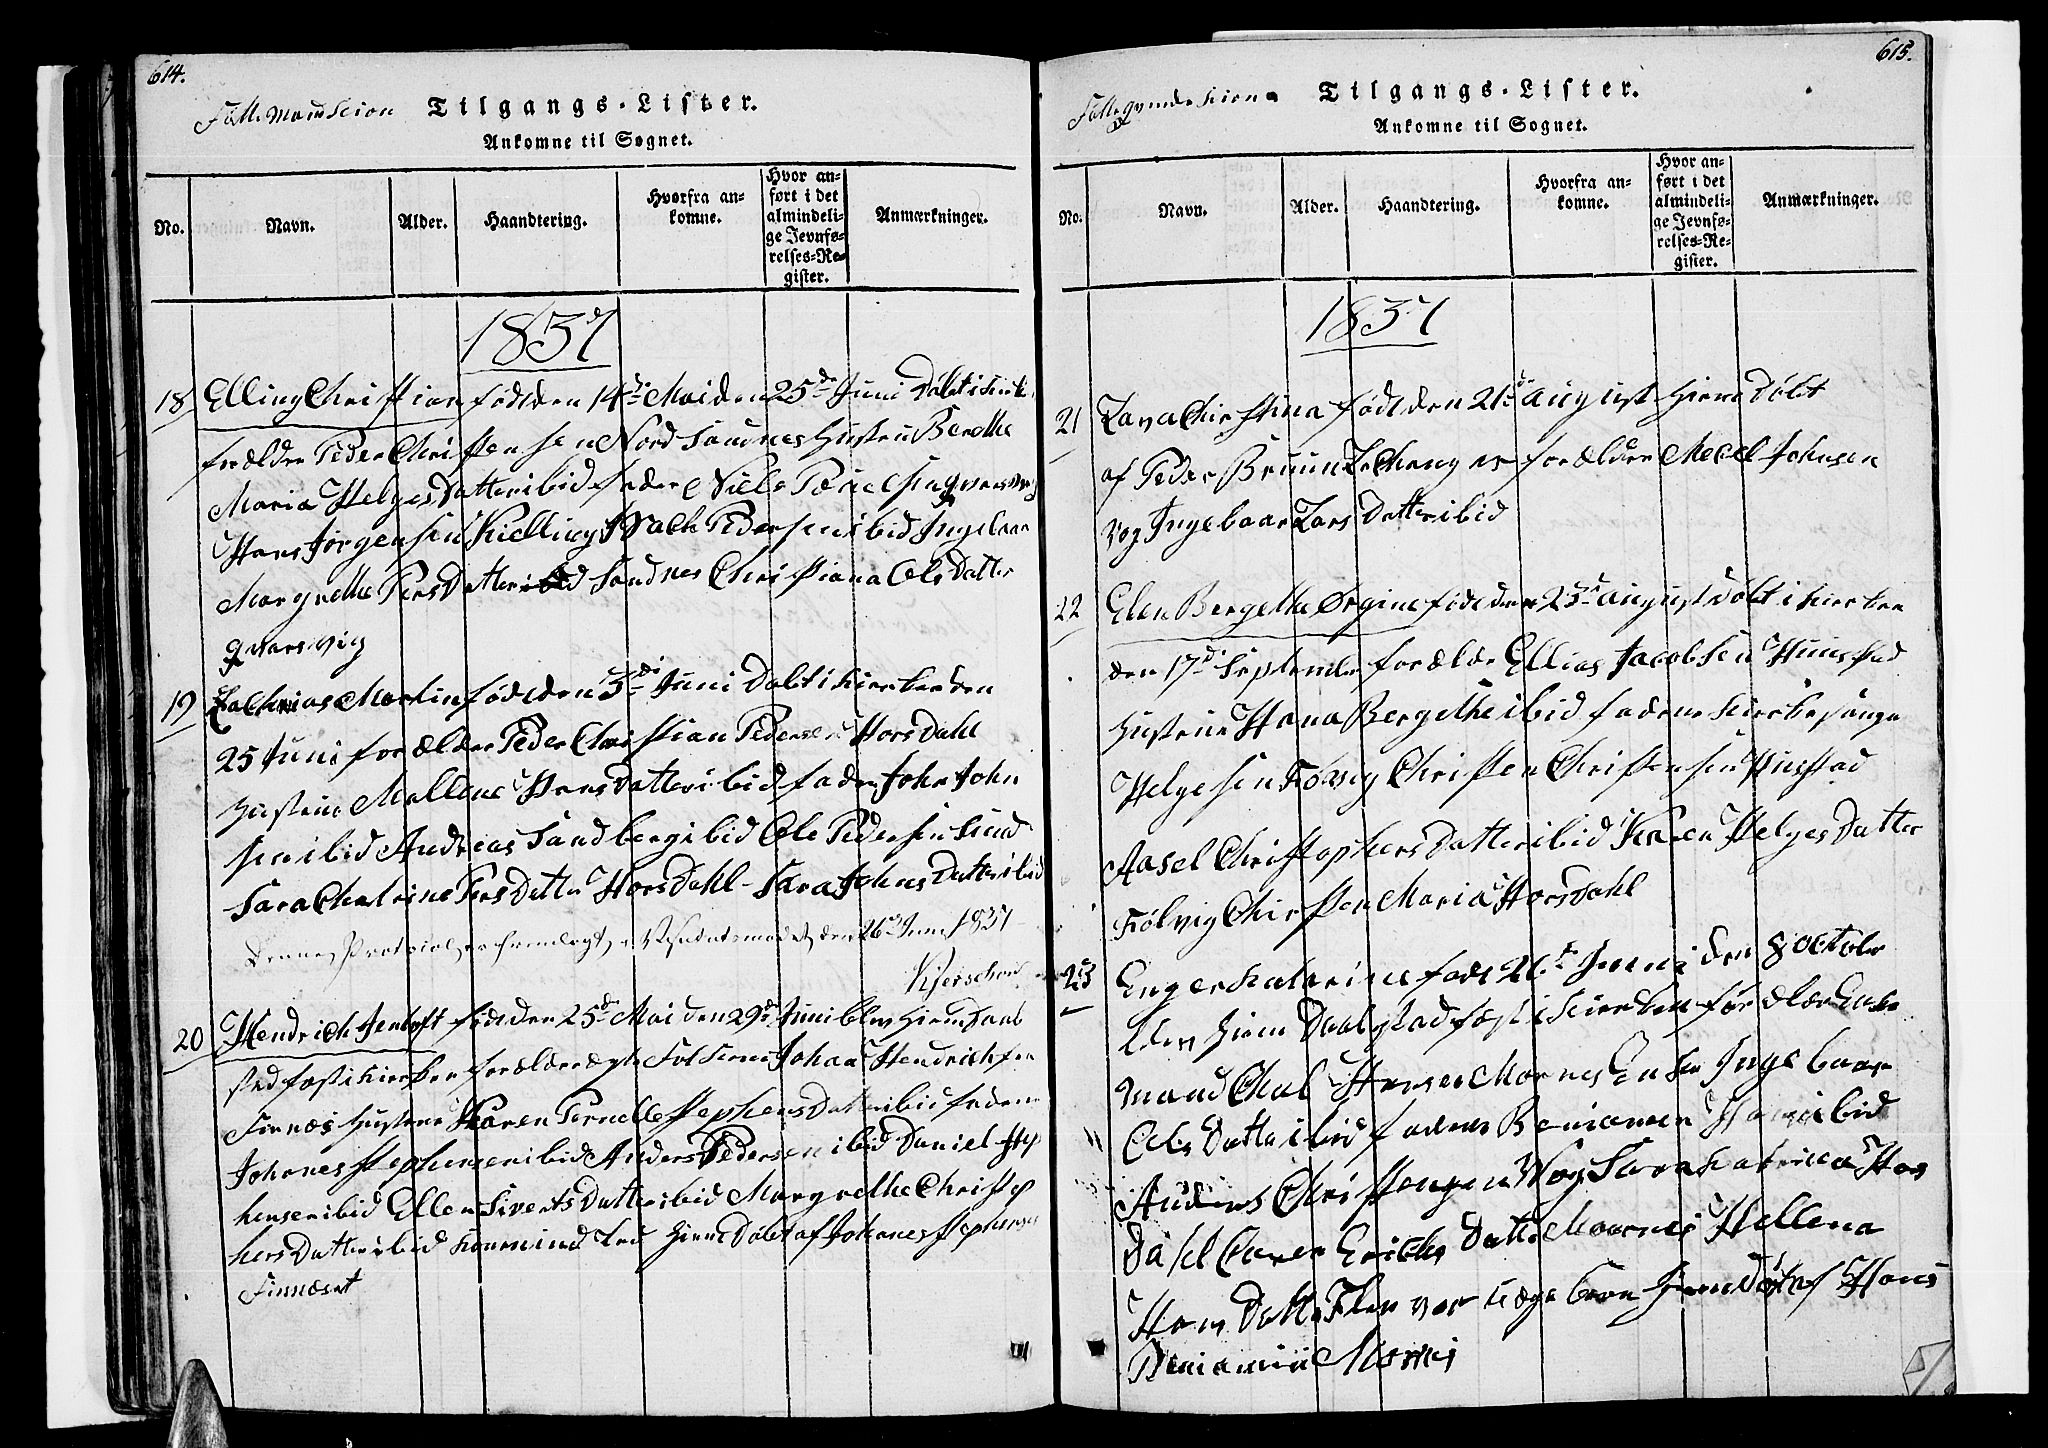 614.
Tilgangs-Lister.
Ankomne til Sognet.
No. Navn. Alder. Haandtering. Hvorfra ankomne. Hvor anført i det almindelige Jevnførelses-Register. Anmærkninger.
1837
18 Elling Christian født den 14de Mai den 25de Juni Døbt i
forældre Peder Christensen Nord Sandnes Hustru Berethe
Maria Helges Datter ibid fadere Niels
Hans Jørgensen Kielling Isach Pedersen ibid Ingebaar
Margrethe Pers Datter ibid Sandnes Christiana Ols Datter
qvarsvig
19 Zachrias Martin født den 3de Juni Døbt i kierken den
25 Juni forældre Peder Christian Pedersen Horsdahl
Hustrue Mallene Hans Datter ibid fadere John John
sen ibid Andreas Sandberg ibid Ole Pedersen Sund
Sara Chatrine Pers Datter Horsdahl Sara Johns Datter ibid
Denne Protocol er fremlagt i Visitatsmødet den 26 Juni 1837
20 Hendrich Jentoft født den 25de Mai den 29de Juni blev Hiemdaab
sted fæst i kierken forældre ægte Folk Johan Hendrichsen
Finnæs Hustrue Karen Pernelle Stephens Datter ibid fadere
Johanes Stephensen ibid Anders Pedersen ibid Daniel Step
hensen ibid Ellen Siverts Datter ibid Margrethe Christop
hers Datter ibid Hiemdøbt af Johanes Stephensen
Finnæset
615.
Tilgangs-Lister.
Ankomne til Sognet.
No. Navn. Alder. Haandtering. Hvorfra ankomne. Hvor anført i det almindelige Jevnførelses-Register. Anmærkninger.
1837
21 Lava Christina født den 21de august Hiemdøbt
af Peder Bruun forældre Johnsen
Vog Ingebaar Lars Datter ibid
22 Elen Bergethe Ørgine født den 23de august Døbt i kierken
den 17de September forældre Ellias Jacobsen Hunstad
Hustrue Hana Bergethe ibid fadere kierkesanger
Helgesen Følvig Christen Christensen Hustad
Aasel Christophers Datter ibid Karen Helges Datter
Følvig Christen Maria Horsdahl
23 Enger Katarina født 26de Juni den 8 octobr
blev Hiem Daab stadfæst i kierken forældre Enke
mand Hansen Mornes Enke Ingebaar
Ols Datter ibid fadere Beniamen Hans ibid
Anders Christensen Vog Sara Katrina Hos
Dahl Karen Erichs Datter Maarnes Hellena
Hans Datter var uægte barn Hiemdøbt af Hans
Beniamin Mornes